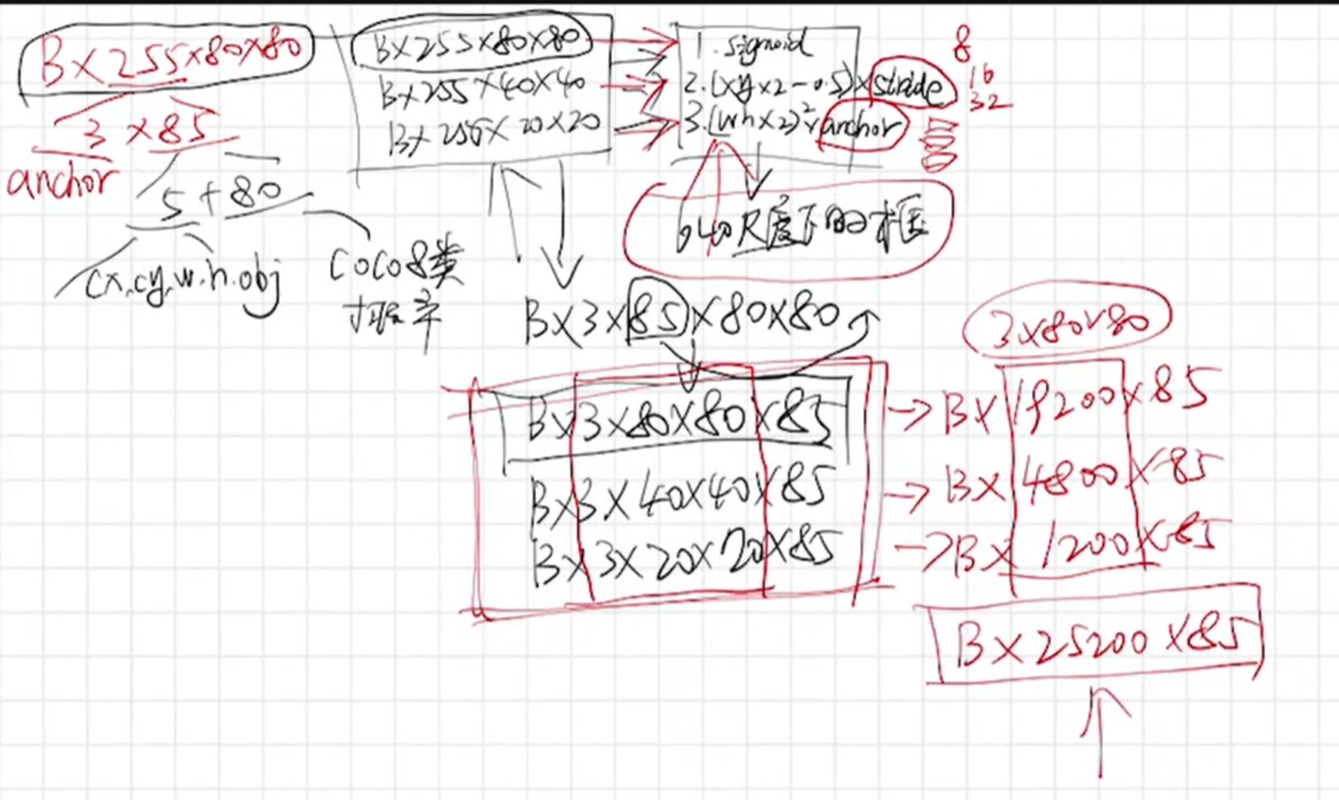 B×255×80×80
3 × 85
anchor
5 + 80
cx.cy.w.h.obj
CoCo8类
概率
B×255×80×80
B×255×40×40
B×255×20×20
1. sigmoid
2.(xy×2-0.5)×stride
3.(wh×2)²×anchor
8
16
32
640尺度下的框
B×3×85×80×80
B×3×80×80×85
B×3×40×40×85
B×3×20×20×85
3×80×80
→B×19200×85
→B×4800×85
→B×1200×85
B×25200×85